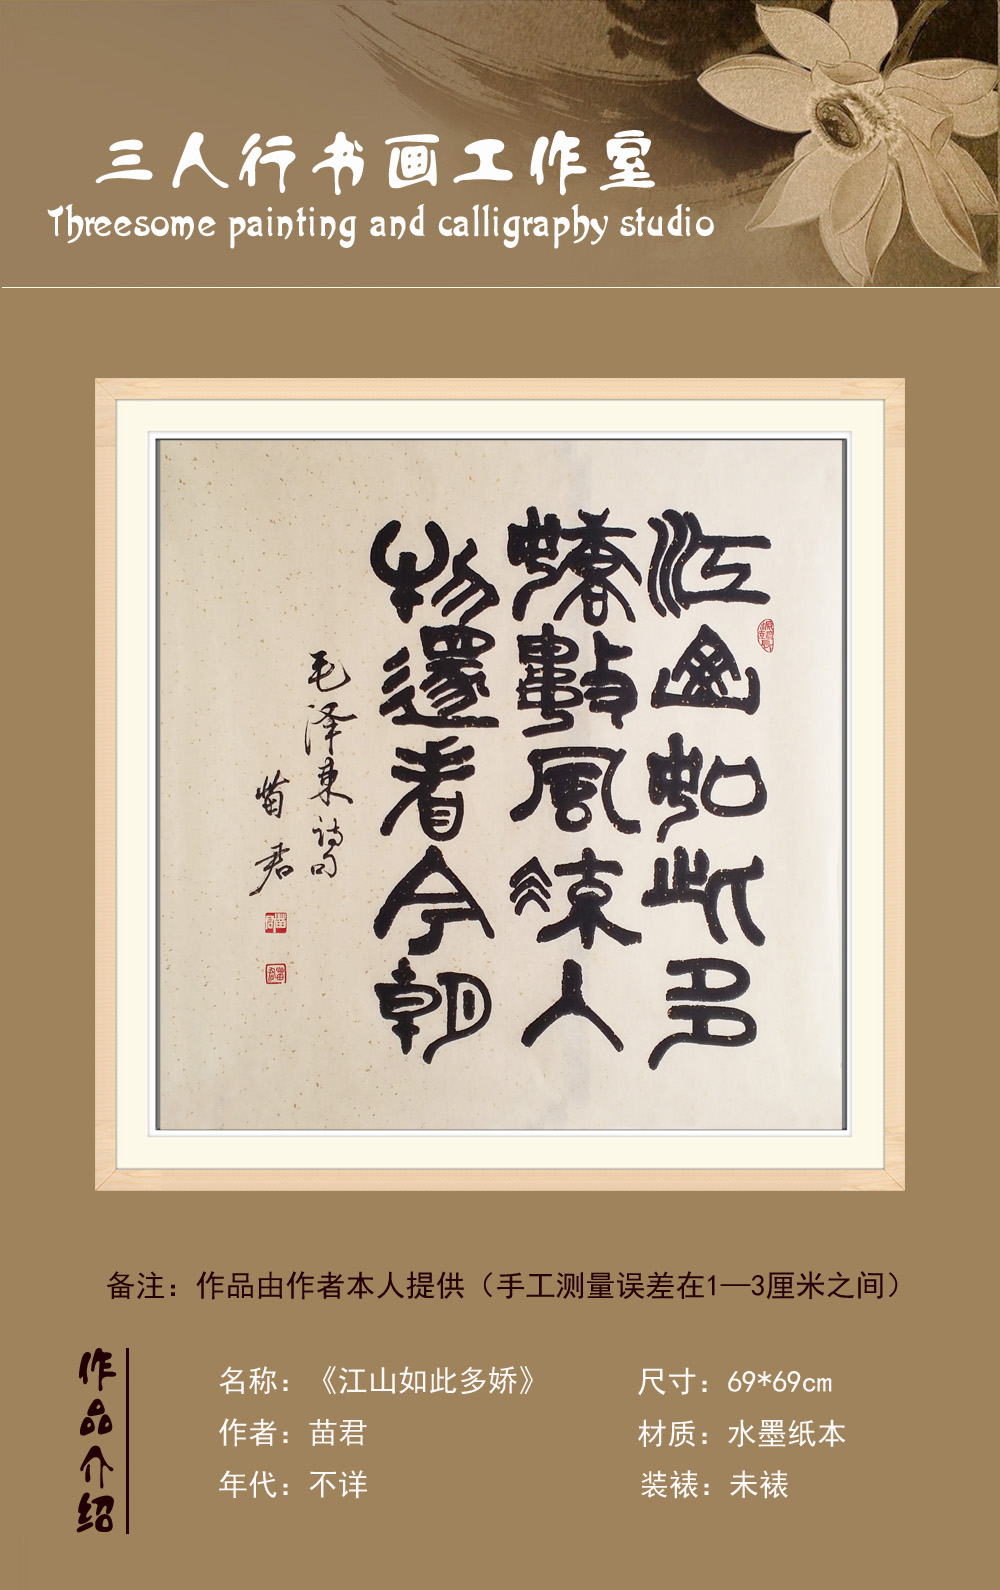 三人行书画工作室
Threesome painting and calligraphy studio
江山如此多
嬌數風流人
物還看今朝
毛泽東詩句
苗君
备注：作品由作者本人提供（手工测量误差在1—3厘米之间）
作品介绍
名称：《江山如此多娇》
尺寸：69*69cm
作者：苗君
材质：水墨纸本
年代：不详
装裱：未裱